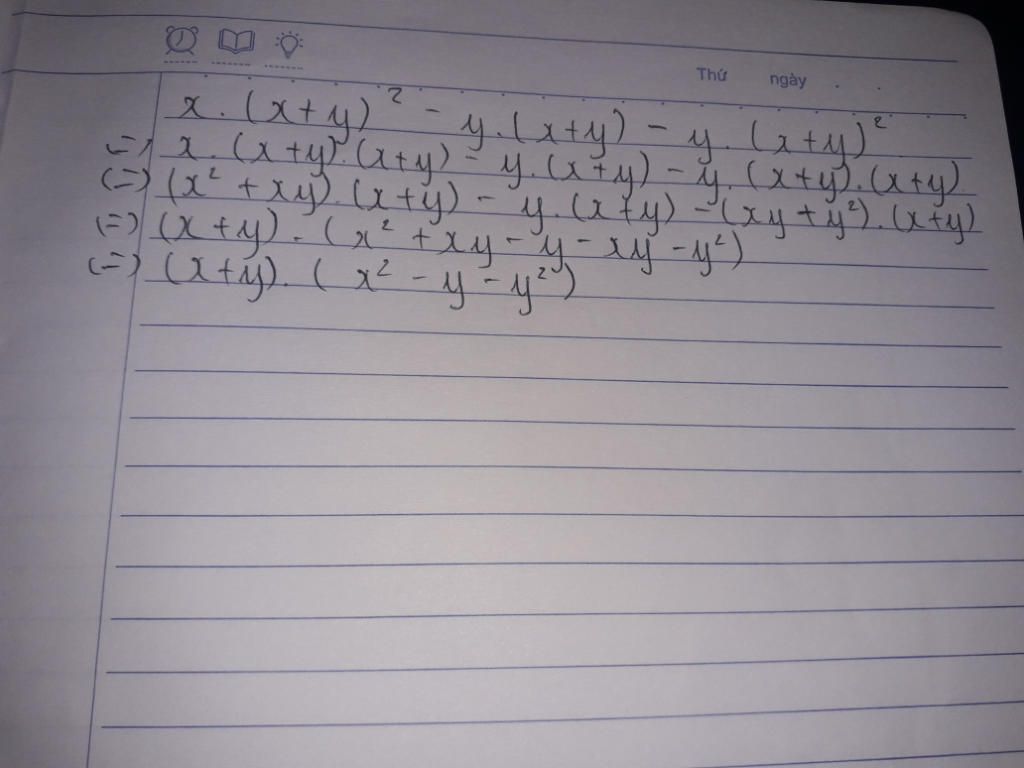 Thứ ngày
x.(x+y)² - y.(x+y) - y.(x+y)²
=) x.(x+y).(x+y) - y.(x+y) - y.(x+y).(x+y)
(=) (x² + xy).(x+y) - y.(x+y) - (xy+y²).(x+y)
(=) (x+y).(x² + xy - y - xy - y²)
(=) (x+y).(x² - y - y²)